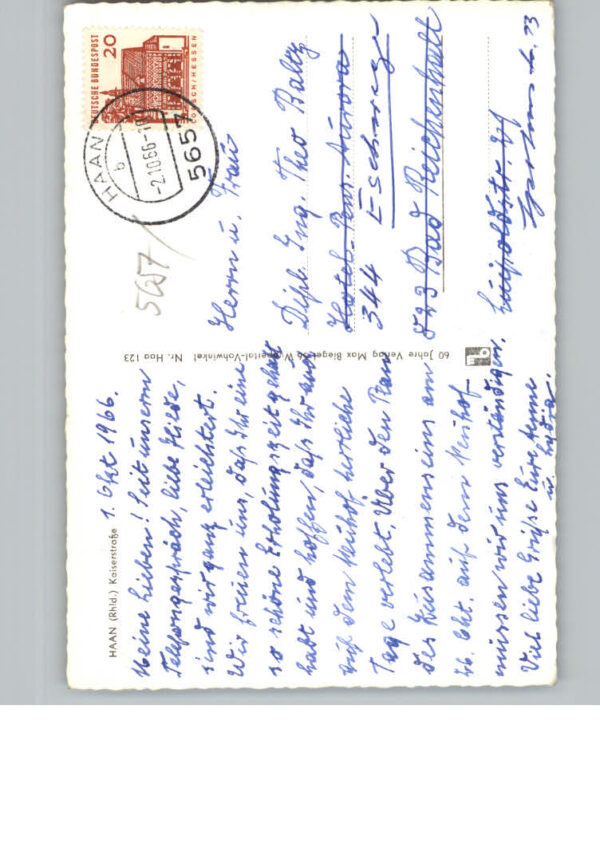 HAAN (Rhld.) Kaiserstraße
1. Okt 1966.
Meine Lieben! Seit unserm
Telefongespräch, liebe Friede,
sind wir ganz erleichtert.
Wir freuen uns, daß Ihr eine
so schöne Erholungszeit gehabt
habt und hoffen, daß Ihr auch
auf dem Neuhof herrliche
Tage verlebt. Über den Plan
des Zusammenseins am
26. Okt. auf dem Neuhof
müssen wir uns verständigen.
Viele liebe Grüße Eure Anne
u. Lydia.
60 Jahre Verlag Max Bieget 56 Wuppertal-Vohwinkel Nr. Haa 123
DEUTSCHE BUNDESPOST
20
LORSCH/HESSEN
HAAN
b
-2.10.66-1
5657
5657
Herrn u. Frau
Dipl. Ing. Theo Baltz
Hotel-Pens. Aurora
344 Eschwege
823 Bad Reichenhall
Luipoldstr.
23